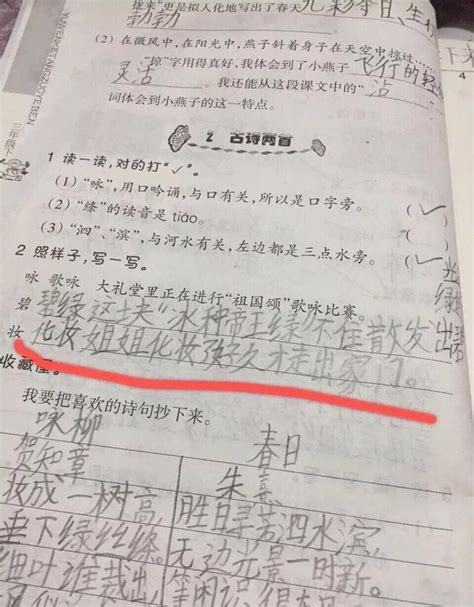 拢来”更是拟人化地写出了春天
勃勃
(2) 在微风中,在阳光中,燕子斜着身子在天空中掠过……
“掠”字用得真好,我体会到了小燕子飞行的轻
灵活。我还能从这段课文中的“
词体会到小燕子的这一特点。
2 古诗两首
1 读一读,对的打“✓”。
(1)“咏”,用口吟诵,与口有关,所以是口字旁。(✓)
(2)“绦”的读音是 tiáo。(
(3)“泗”、“滨”,与河水有关,左边都是三点水旁。(✓)
2 照样子,写一写。
咏 歌咏 大礼堂里正在进行“祖国颂”歌咏比赛。
碧 碧绿 这块“冰种帝王绿”不住散发出碧绿光
妆 化妆 姐姐化妆好久才走出家门。
收藏屋。
我要把喜欢的诗句抄下来。
咏柳 春日
贺知章 朱熹
妆成一树高, 胜日寻芳泗水滨,
垂下绿丝绦。 无边光景一时新。
细叶谁裁出,
YANJIUKETANGZUOYEBEN
三年级下
4